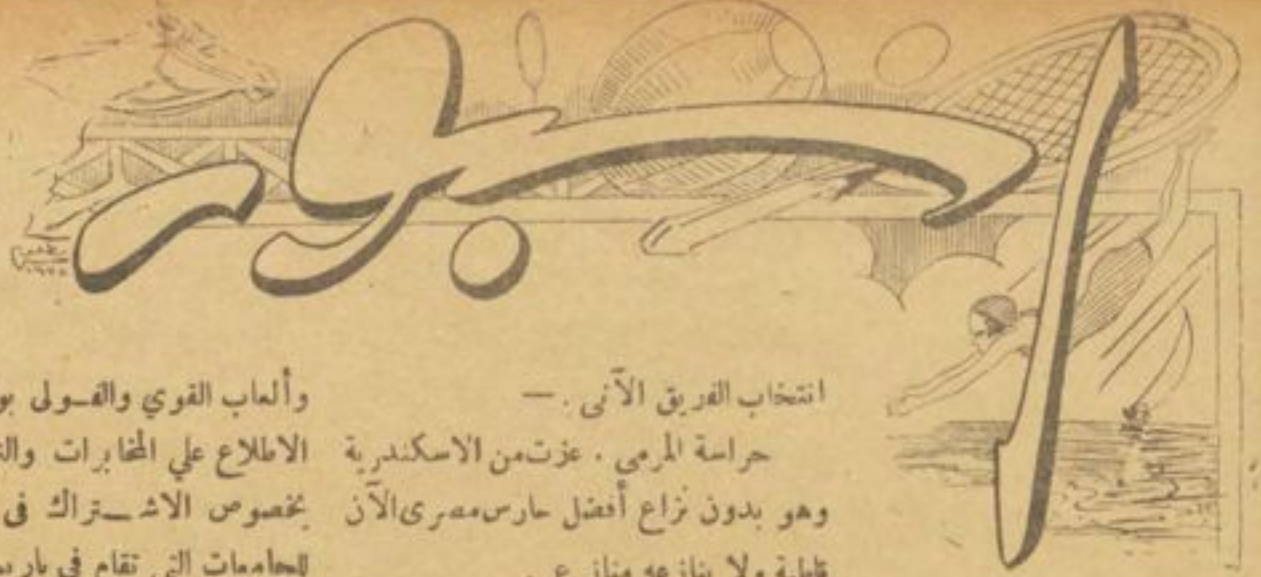 اسبور
انتخاب الفريق الآتى . —
حراسة المرمي . عزت من الاسكندرية
وهو بدون نزاع أفضل حارس مصرى الآن
قابلية ولا ينازعه منازع .
وألعاب القوي والفولى بو
الاطلاع علي المخابرات والت
بخصوص الاشتراك فى
للجامعات التى تقام فى بار